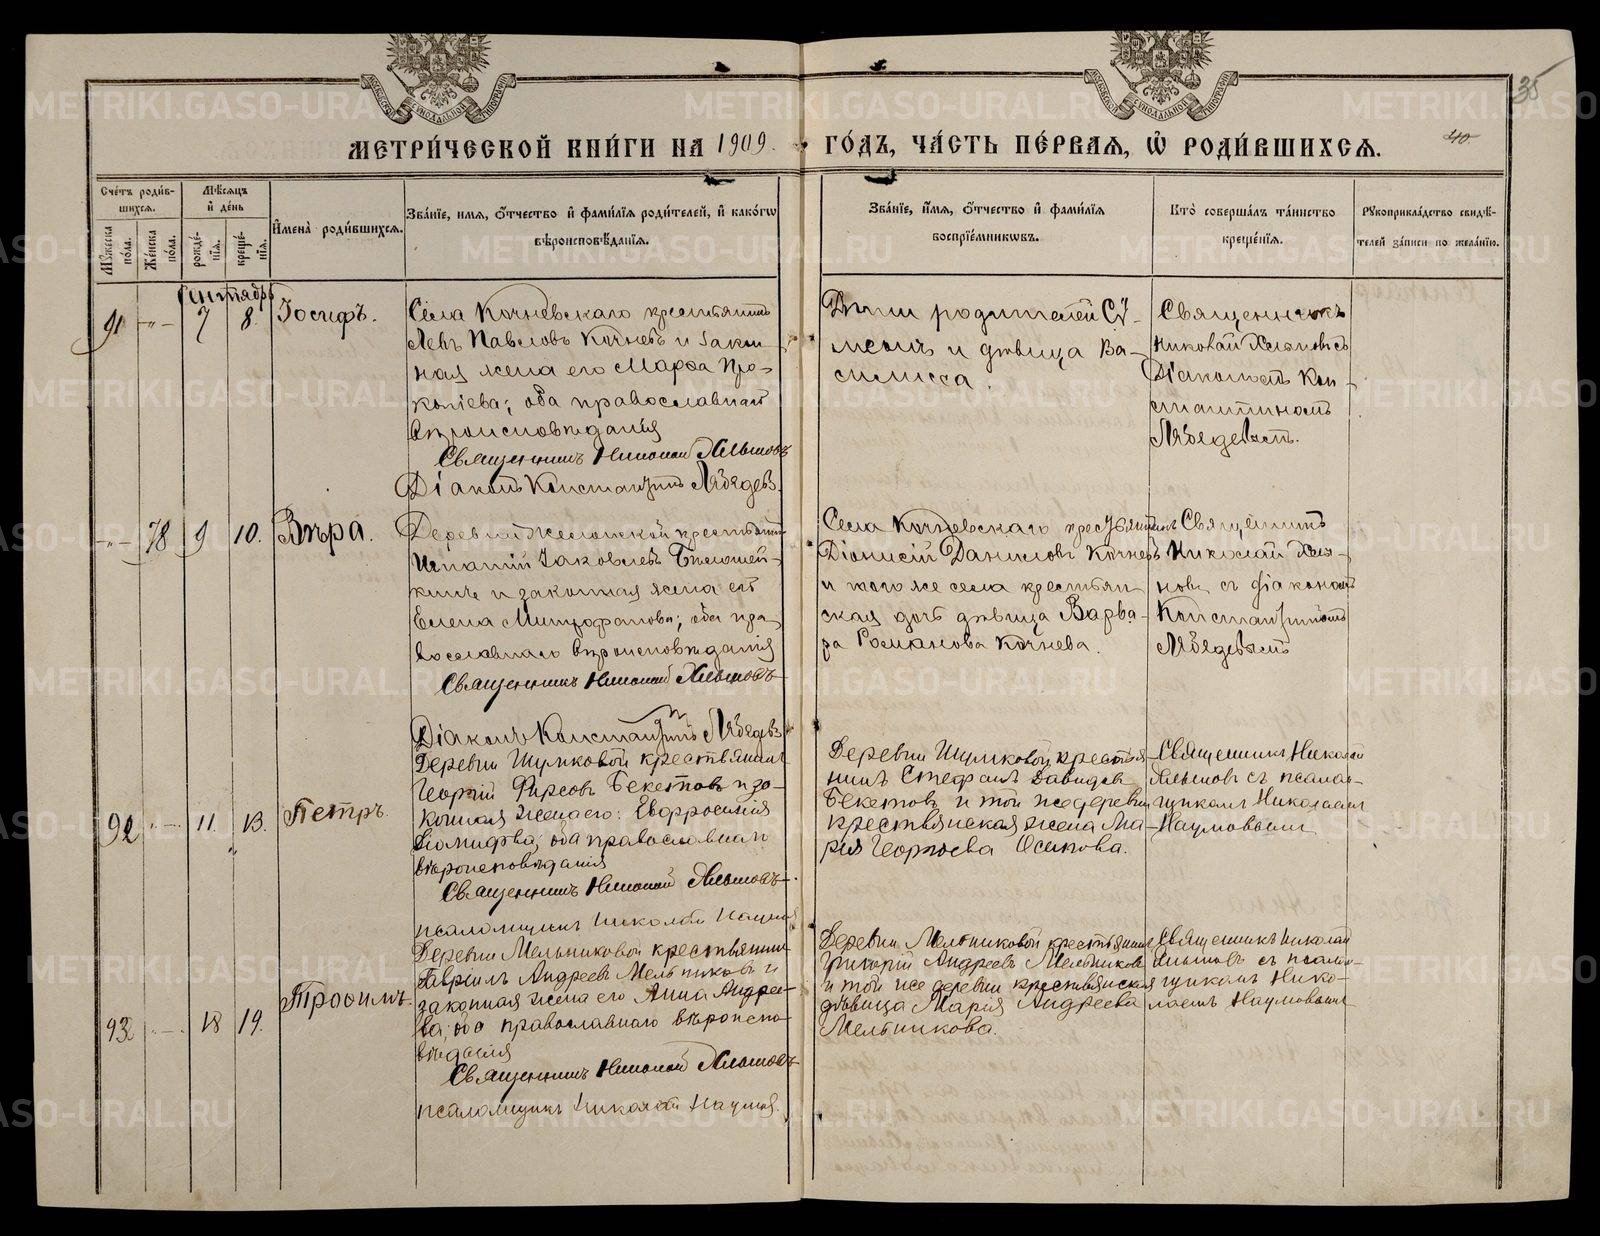 МЕТРИ́ЧЕСКОЙ КНИ́ГИ НА 1909. ГО́ДЪ, ЧА́СТЬ ПЕ́РВАЯ, Ѽ РОДИ́ВШИХСЯ.
35
40.
Сче́тъ роди́в-
шихся.
Му́жеска по́ла.
Же́нска по́ла.
Мѣ́сяцъ
и҆ де́нь
рожде́-
нїя.
креще́-
нїя.
И҆мена̀ роди́вшихся.
Зва́нїе, имя, ѻ҆́тчество и҆ фами́лїя роди́телей, и҆ како́гѡ
вѣроисповѣ́данїя.
Зва́нїе, и҆́мя, ѻ҆́тчество и҆ фами́лїя
воспрїе́мникѡвъ.
Кто̀ соверша́лъ та́инство
креще́нїя.
Рꙋкоприкла́дство свидѣ́-
телей за́писи по жела́нїю.
Сентябрь
91 -"- 7 8. Іосифъ.
Села Кочневскаго крестьянинъ
Левъ Павловъ Кочневъ и закон
ная жена его Марѳа Про-
копіева; оба православнаго
вѣроисповѣданія
Священникъ Николай
Діаконъ Константинъ
Дѣти родителей Су-
меонъ и дѣвица Ва-
силисса.
Священникъ
Николай
Діакономъ Кон-
стантиномъ
-"- 78 9 10. Вѣра.
Деревни крестьянинъ
Игнатій Іаковлевъ
и законная жена его
Елена Митрофанова; оба пра
вославнаго вѣроисповѣданія
Священникъ Николай
Діаконъ Константинъ
Села Кочневскаго крестьянинъ
Діонисій Даниловъ Кочневъ
и того же села крестьян
ская дочь дѣвица Варва-
ра Романова Кочнева.
Священникъ
Николай
съ діакономъ
Константиномъ
92 -"- 11. 13. Петръ.
Деревни Шумковой крестьянинъ
Георгій Фирсовъ Бекетовъ и за-
конная жена его: Евфросинія
оба православнаго
вѣроисповѣданія
Священникъ Николай
псаломщикъ Николай Наумов
Деревни Шумковой крестья
нинъ Стефанъ Давидов
Бекетовъ и той же деревни
крестьянская жена Ма-
рія Георгіева Осипова.
Священникъ Николай
съ псалом-
щикомъ Николаемъ
Наумовымъ
93 -"- 18 19. Трофимъ.
Деревни Мельниковой крестьянинъ
Гавріилъ Андреевъ Мельниковъ и
законная жена его Анна Андрее-
ва; оба православнаго вѣроиспо-
вѣданія
Священникъ Николай
псаломщикъ Николай Наумов.
Деревни Мельниковой крестьянинъ
Григорій Андреевъ Мельников
и той же деревни крестьянская
дѣвица Марія Андреева
Мельникова.
Священникъ Николай
съ псалом-
щикомъ Нико-
лаемъ Наумовымъ
METRIKI.GASO-URAL.RU